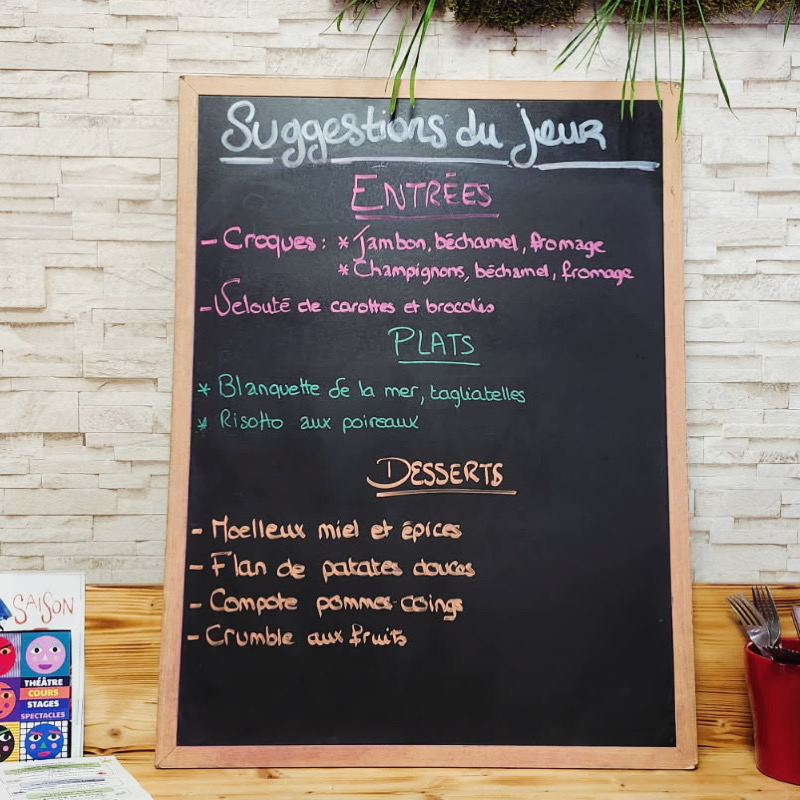 Suggestions du jour
ENTRÉES
- Croques : * Jambon, béchamel, fromage
* Champignons, béchamel, fromage
- Velouté de carottes et brocolis
PLATS
* Blanquette de la mer, tagliatelles
* Risotto aux poireaux
DESSERTS
- Moelleux miel et épices
- Flan de patates douces
- Compote pommes-coings
- Crumble aux fruits
SAISON
THÉÂTRE
COURS
STAGES
SPECTACLES